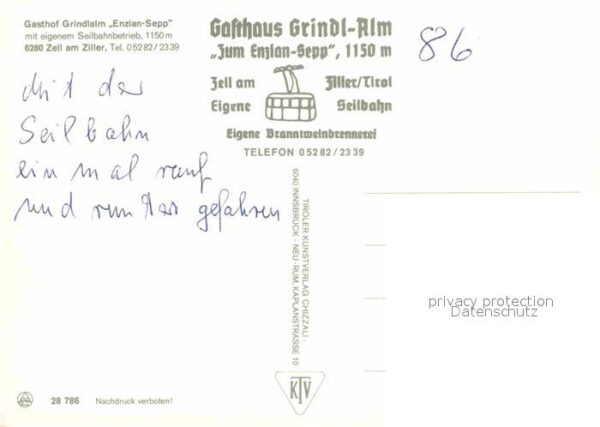 Gasthof Grindlalm „Enzian-Sepp"
mit eigenem Seilbahnbetrieb, 1150 m
6280 Zell am Ziller, Tel. 05282/2339
Mit der
Seilbahn
einmal rauf
und runter gefahren
Gasthaus Grindl-Alm
„Zum Enzian-Sepp", 1150 m
Zell am Ziller/Tirol
Eigene Seilbahn
Eigene Branntweinbrennerei
TELEFON 05282/2339
86
TIROLER KUNSTVERLAG CHIZZALI ·
6040 INNSBRUCK - NEU-RUM, KAPLANSTRASSE 10
privacy protection
Datenschutz
KTV
28 786 Nachdruck verboten!